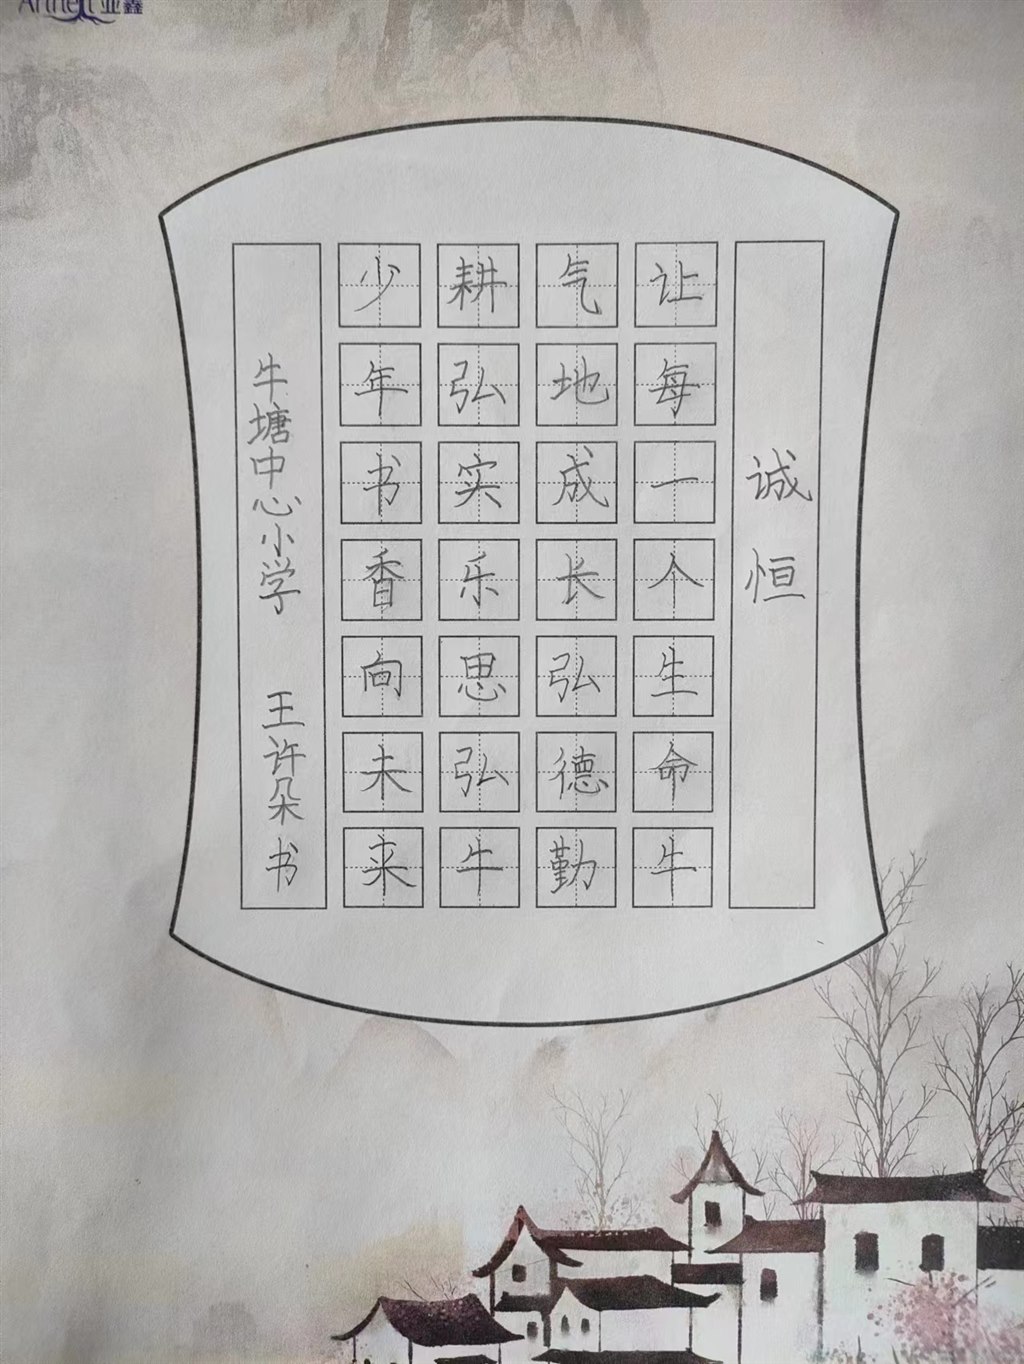 诚恒
让每一个生命牛
气地成长弘德勤
耕弘实乐思弘牛
少年书香向未来
牛塘中心小学 王许朵书
亚鑫